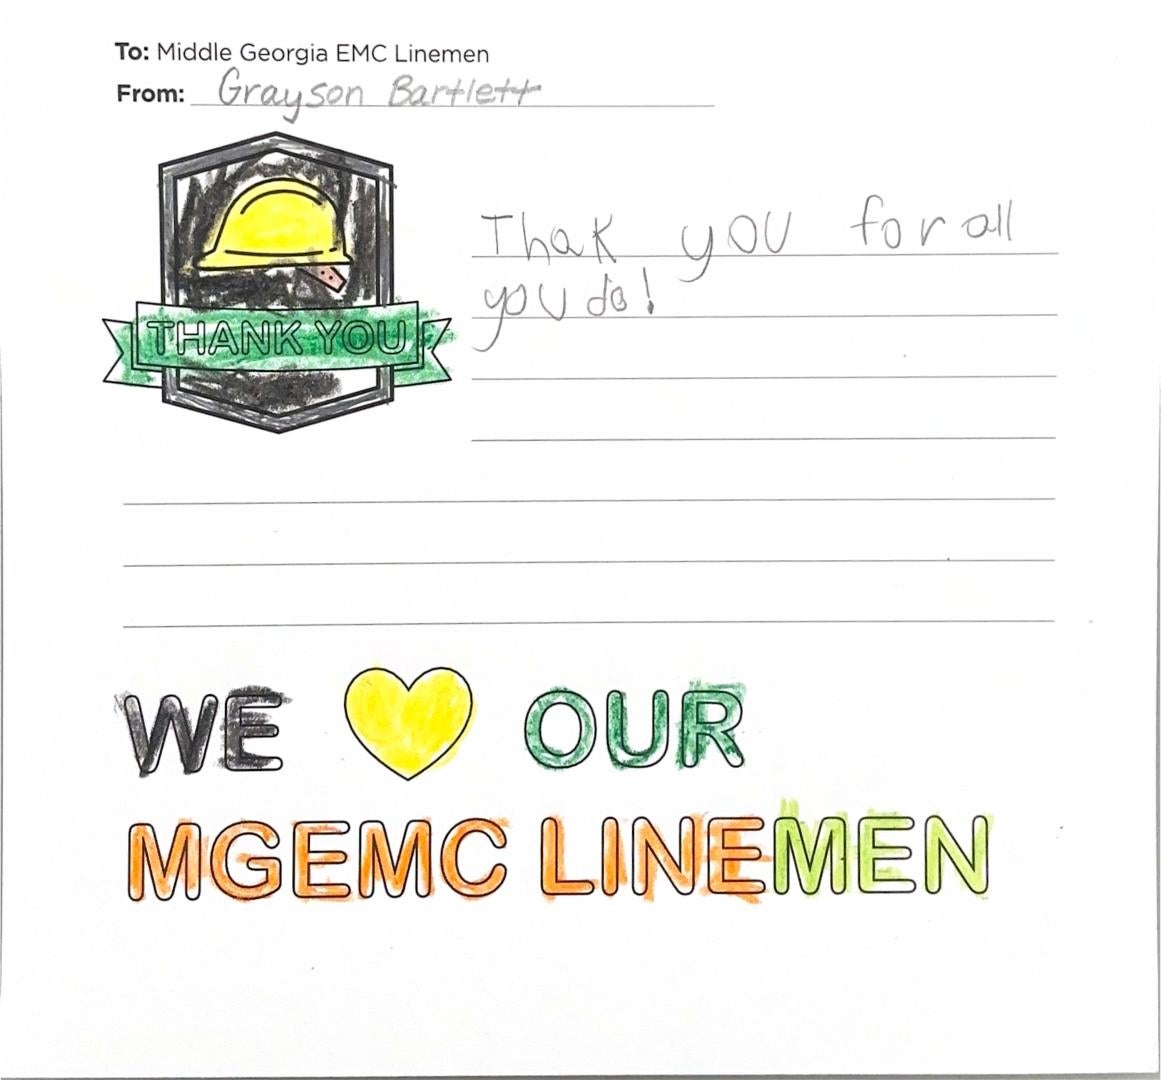 To: Middle Georgia EMC Linemen
From: Grayson Bartlett
THANK YOU
Thak you for all
you do!
WE OUR
MGEMC LINEMEN